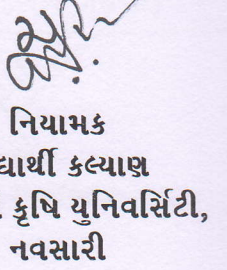 નિયામક
કલ્યાણ
કૃષિ યુનિવર્સિટી,
નવસારી